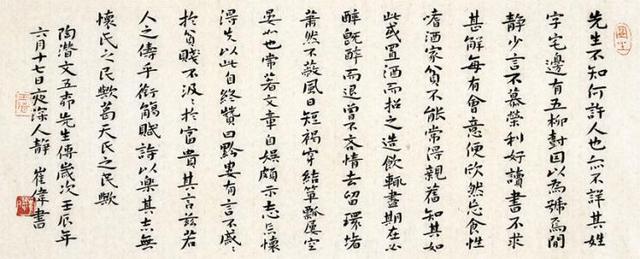 先生不知何許人也亦不詳其姓
字宅邊有五柳樹因以為號焉閒
静少言不慕榮利好讀書不求
甚解每有會意便欣然忘食性
嗜酒家貧不能常得親舊知其如
此或置酒而招之造飲輒盡期在必
醉既醉而退曾不吝情去留環堵
蕭然不蔽風日短褐穿結簞瓢屢空
晏如也常著文章自娱頗示志忘懷
得失以此自終贊曰黔婁有言不慼〻
於貧賤不汲〻於富貴其言茲若
人之儔乎銜觴賦詩以樂其志無
懷氏之民歟葛天氏之民歟
陶潛文五柳先生傳歲次壬辰年
六月十七日夜深人靜 崔偉書